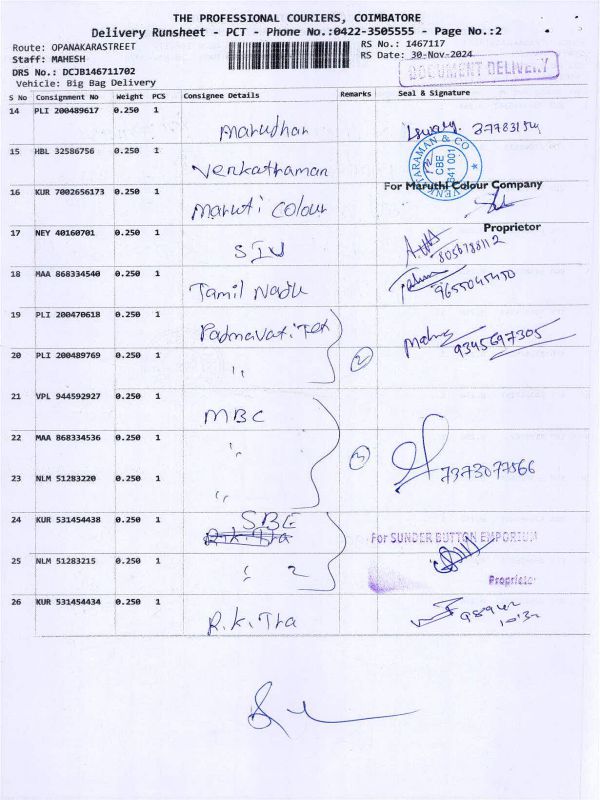 THE PROFESSIONAL COURIERS, COIMBATORE
Delivery Runsheet - PCT - Phone No.:0422-3505555 - Page No.:2
Route: OPANAKARASTREET
RS No.: 1467117
Staff: MAHESH
RS Date: 30-Nov-2024
DRS No.: DCJB146711702
DOCUMENT DELIVERY
Vehicle: Big Bag Delivery
S No Consignment No Weight PCS Consignee Details Remarks Seal & Signature
14 PLI 200489617 0.250 1 Marudhar
15 HBL 32586756 0.250 1 Venkatraman
VENKATRAMAN & CO CBE 641 001
16 KUR 7002656173 0.250 1 Maruti Colour For Maruthi Colour Company
Proprietor
17 NEY 40160701 0.250 1 SIV
18 MAA 868334540 0.250 1 Tamil Nadu 9655045450
19 PLI 200470618 0.250 1 Padmavati Tex 9345697305
20 PLI 200489769 0.250 1 " 2
21 VPL 944592927 0.250 1 MBC
22 MAA 868334536 0.250 1 " 3 7373077566
23 NLM 51283220 0.250 1 "
24 KUR 531454438 0.250 1 SBE For SUNDER BUTTON EMPORIUM
25 NLM 51283215 0.250 1 " 2 Proprietor
26 KUR 531454434 0.250 1 R.K.Tra